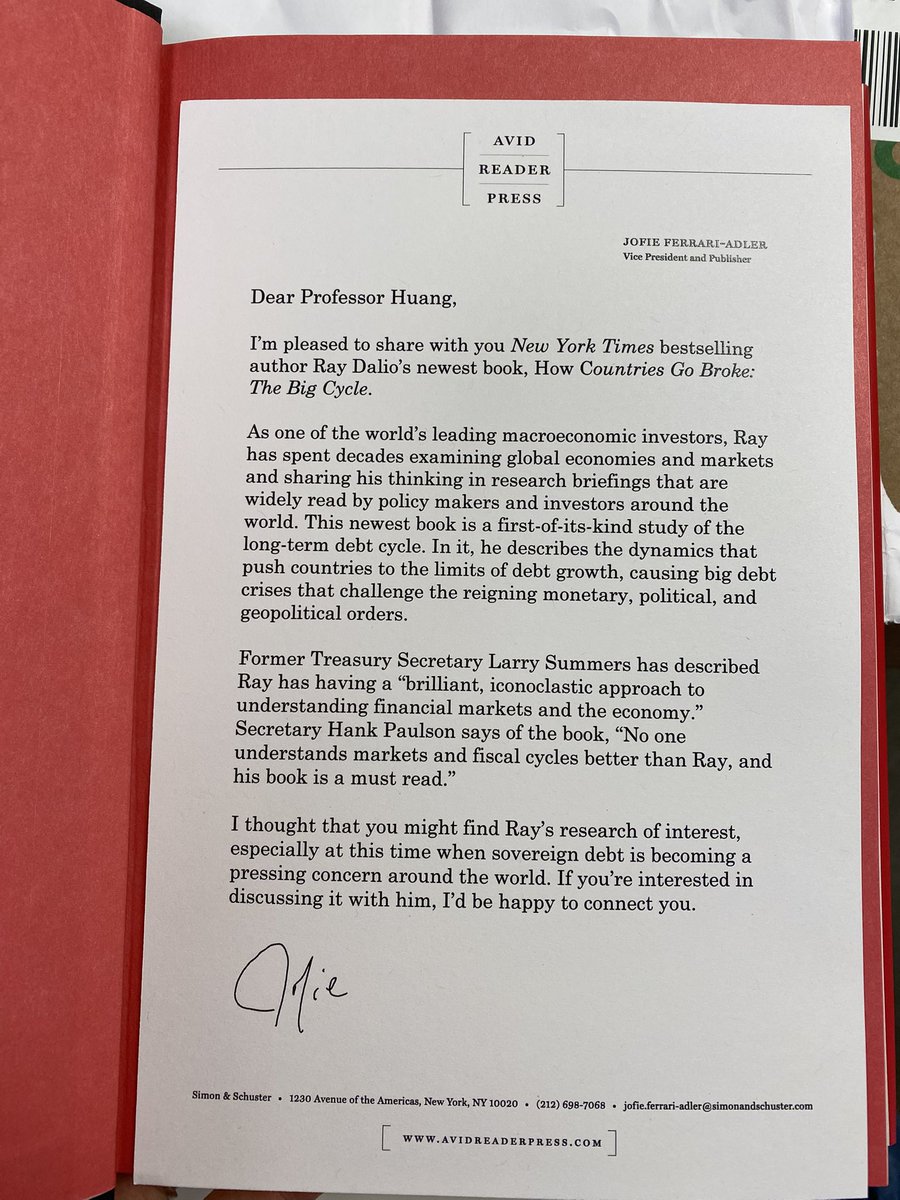 AVID
READER
PRESS
JOFIE FERRARI-ADLER
Vice President and Publisher
Dear Professor Huang,
I'm pleased to share with you New York Times bestselling
author Ray Dalio's newest book, How Countries Go Broke:
The Big Cycle.
As one of the world's leading macroeconomic investors, Ray
has spent decades examining global economies and markets
and sharing his thinking in research briefings that are
widely read by policy makers and investors around the
world. This newest book is a first-of-its-kind study of the
long-term debt cycle. In it, he describes the dynamics that
push countries to the limits of debt growth, causing big debt
crises that challenge the reigning monetary, political, and
geopolitical orders.
Former Treasury Secretary Larry Summers has described
Ray has having a “brilliant, iconoclastic approach to
understanding financial markets and the economy.”
Secretary Hank Paulson says of the book, “No one
understands markets and fiscal cycles better than Ray, and
his book is a must read.”
I thought that you might find Ray's research of interest,
especially at this time when sovereign debt is becoming a
pressing concern around the world. If you're interested in
discussing it with him, I'd be happy to connect you.
Jofie
Simon & Schuster • 1230 Avenue of the Americas, New York, NY 10020 • (212) 698-7068 • jofie.ferrari-adler@simonandschuster.com
WWW.AVIDREADERPRESS.COM